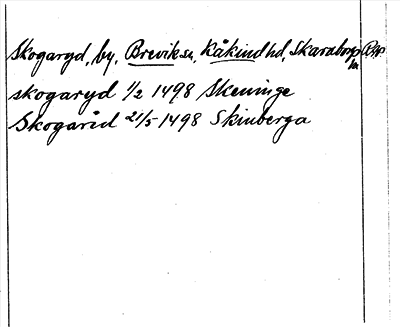 Skogaryd, by, Brevik sn, Kåkind hd, Skaraborgs
m
skogaryd 1/2 1498 Skeninge
Skogaríd 21/5 1498 Skinberga